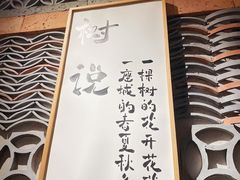 树说
一棵树的花开花
一座城的春夏秋